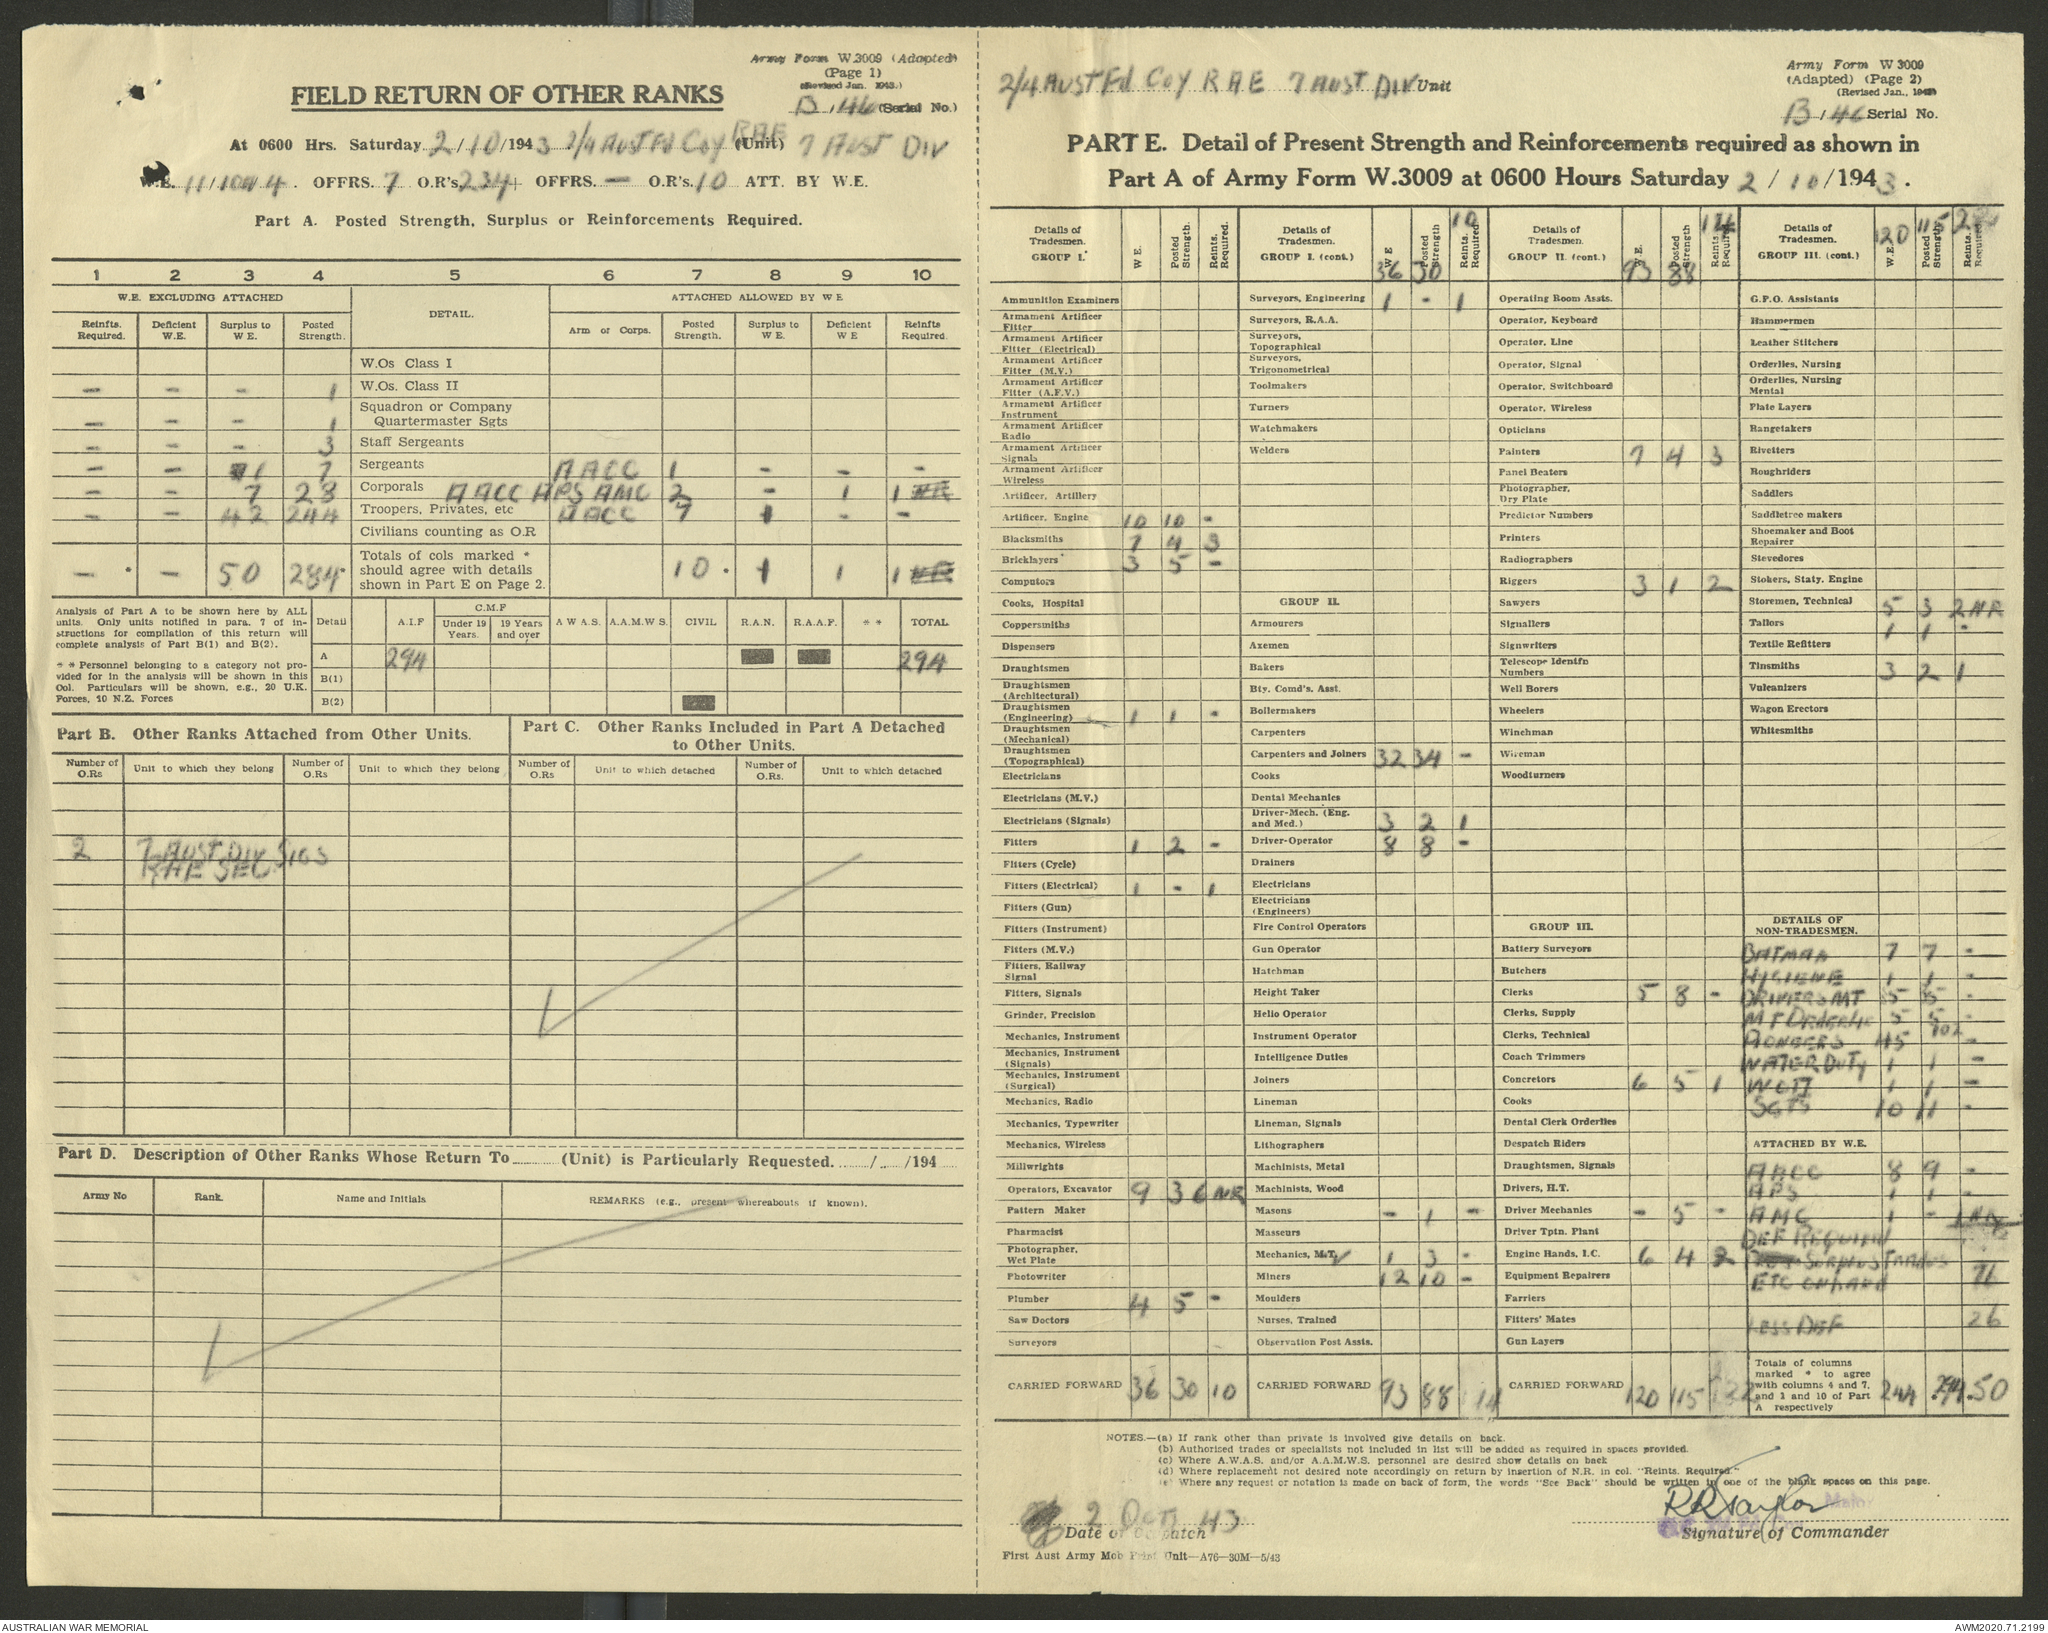 Army Form W.3009 (Adapted)
(Page 1)
(Revised Jan. 1943.)
B / 46 (Serial No.)
FIELD RETURN OF OTHER RANKS
At 0600 Hrs. Saturday 2/10/1943 2/4 AUST Fd Coy RAE (Unit) 7 AUST DIV
W.E. 11/ 4. OFFRS. 7 O.R's. 234 OFFRS. — O.R's. 10 ATT. BY W.E.
Part A. Posted Strength, Surplus or Reinforcements Required.
1 2 3 4 5 6 7 8 9 10
W.E. EXCLUDING ATTACHED DETAIL. ATTACHED ALLOWED BY W E
Reinfts. Required. Deficient W.E. Surplus to W E. Posted Strength. Arm or Corps. Posted Strength. Surplus to W E. Deficient W E Reinfts Required.
W.Os Class I
- - - 1 W.Os. Class II
- - - 1 Squadron or Company Quartermaster Sgts
- - - 3 Staff Sergeants
- - 1 7 Sergeants AACC 1 - - -
- - 7 28 Corporals AACC APS AMC 2 - 1 1
- - 42 244 Troopers, Privates, etc AACC 7 1 - -
Civilians counting as O.R
- * - 50 284* Totals of cols marked * should agree with details shown in Part E on Page 2. 10 * 1 1 1
Analysis of Part A to be shown here by ALL units. Only units notified in para. 7 of instructions for compilation of this return will complete analysis of Part B(1) and B(2).
* * Personnel belonging to a category not provided for in the analysis will be shown in this Col. Particulars will be shown, e.g., 20 U.K. Forces, 10 N.Z. Forces
Detail A.I.F C.M.F Under 19 Years. 19 Years and over A W A S. A.A.M.W S. CIVIL R.A.N. R.A.A.F. * * TOTAL
A 294 294
B(1)
B(2)
Part B. Other Ranks Attached from Other Units.
Part C. Other Ranks Included in Part A Detached to Other Units.
Number of O.Rs Unit to which they belong Number of O.Rs Unit to which they belong Number of O.Rs Unit to which detached Number of O.Rs. Unit to which detached
2 7 AUST DIV SIGS
RAE SEC
Part D. Description of Other Ranks Whose Return To (Unit) is Particularly Requested. / /194
Army No Rank. Name and Initials REMARKS (e.g., present whereabouts if known).
2/4 AUST Fd Coy RAE 7 AUST DIV Unit
Army Form W 3009
(Adapted) (Page 2)
(Revised Jan., 1943)
B / 46 Serial No.
PART E. Detail of Present Strength and Reinforcements required as shown in
Part A of Army Form W.3009 at 0600 Hours Saturday 2 / 10 / 1943.
Details of Tradesmen. GROUP I. W E. Posted Strength. Reints. Required.
Ammunition Examiners
Armament Artificer Fitter
Armament Artificer Fitter (Electrical)
Armament Artificer Fitter (M.V.)
Armament Artificer Fitter (A.F.V.)
Armament Artificer Instrument
Armament Artificer Radio
Armament Artificer Signals
Armament Artificer Wireless
Artificer, Artillery
Artificer, Engine 10 10 -
Blacksmiths 7 4 3
Bricklayers 3 5 -
Computors
Cooks, Hospital
Coppersmiths
Dispensers
Draughtsmen
Draughtsmen (Architectural)
Draughtsmen (Engineering) 1 1 -
Draughtsmen (Mechanical)
Draughtsmen (Topographical)
Electricians
Electricians (M.V.)
Electricians (Signals)
Fitters 1 2 -
Fitters (Cycle)
Fitters (Electrical) 1 - 1
Fitters (Gun)
Fitters (Instrument)
Fitters (M.V.)
Fitters, Railway Signal
Fitters, Signals
Grinder, Precision
Mechanics, Instrument
Mechanics, Instrument (Signals)
Mechanics, Instrument (Surgical)
Mechanics, Radio
Mechanics, Typewriter
Mechanics, Wireless
Millwrights
Operators, Excavator 9 3 6 NR
Pattern Maker
Pharmacist
Photographer, Wet Plate
Photowriter
Plumber 4 5 -
Saw Doctors
Surveyors
CARRIED FORWARD 36 30 10
Details of Tradesmen. GROUP I. (cont.) W E 36 Posted Strength 30 Reints. Required 10
Surveyors, Engineering 1 - 1
Surveyors, R.A.A.
Surveyors, Topographical
Surveyors, Trigonometrical
Toolmakers
Turners
Watchmakers
Welders
GROUP II.
Armourers
Axemen
Bakers
Bty. Comd's. Asst.
Boilermakers
Carpenters
Carpenters and Joiners 32 34 -
Cooks
Dental Mechanics
Driver-Mech. (Eng. and Med.) 3 2 1
Driver-Operator 8 8 -
Drainers
Electricians
Electricians (Engineers)
Fire Control Operators
Gun Operator
Hatchman
Height Taker
Helio Operator
Instrument Operator
Intelligence Duties
Joiners
Lineman
Lineman, Signals
Lithographers
Machinists, Metal
Machinists, Wood
Masons - 1 -
Masseurs
Mechanics, M.T. 1 3 -
Miners 12 10 -
Moulders
Nurses, Trained
Observation Post Assts.
CARRIED FORWARD 93 88 14
Details of Tradesmen. GROUP II. (cont.) W E. 93 Posted Strength 88 Reints Required 14
Operating Room Assts.
Operator, Keyboard
Operator, Line
Operator, Signal
Operator, Switchboard
Operator, Wireless
Opticians
Painters 7 4 3
Panel Beaters
Photographer, Dry Plate
Predictor Numbers
Printers
Radiographers
Riggers 3 1 2
Sawyers
Signallers
Signwriters
Telescope Identfn Numbers
Well Borers
Wheelers
Winchman
Wireman
Woodturners
GROUP III.
Battery Surveyors
Butchers
Clerks 5 8 -
Clerks, Supply
Clerks, Technical
Coach Trimmers
Concretors 6 5 1
Cooks
Dental Clerk Orderlies
Despatch Riders
Draughtsmen, Signals
Drivers, H.T.
Driver Mechanics - 5 -
Driver Tptn. Plant
Engine Hands, I.C. 6 4 2
Equipment Repairers
Farriers
Fitters' Mates
Gun Layers
CARRIED FORWARD 120 115 22
Details of Tradesmen. GROUP III. (cont.) W.E. 120 Posted Strength 115 Reints. Required 22
G.P.O. Assistants
Hammermen
Leather Stitchers
Orderlies, Nursing
Orderlies, Nursing Mental
Plate Layers
Rangetakers
Rivetters
Roughriders
Saddlers
Saddletree makers
Shoemaker and Boot Repairer
Stevedores
Stokers, Staty. Engine
Storemen, Technical 5 3 2 NR
Tailors 1 1 -
Textile Refitters
Tinsmiths 3 2 1
Vulcanizers
Wagon Erectors
Whitesmiths
DETAILS OF NON-TRADESMEN.
BATMAN 7 7 -
HYGIENE 1 1 -
DRIVERS MT 35 35 -
MT 5 5 -
PIONEERS 45 102 -
WATER DUTY 1 1 -
WOII 1 1 -
SGTS 10 11 -
ATTACHED BY W.E.
AACC 8 9 -
APS 1 1 -
AMC 1 - 1 NR
DEF REQUIRED
SURPLUS TRADES
ETC ON HAND 76
LESS DEF 26
Totals of columns marked * to agree with columns 4 and 7, and 1 and 10 of Part A respectively 244 *294 *50
NOTES.—(a) If rank other than private is involved give details on back.
(b) Authorised trades or specialists not included in list will be added as required in spaces provided.
(c) Where A.W.A.S. and/or A.A.M.W.S. personnel are desired show details on back
(d) Where replacement not desired note accordingly on return by insertion of N.R. in col. "Reints. Required."
(e) Where any request or notation is made on back of form, the words "See Back" should be written in one of the blank spaces on this page.
2 OCT 43
Date of Despatch
RR Taylor Major
Signature of Commander
First Aust Army Mob Print Unit—A76—30M—5/43
AUSTRALIAN WAR MEMORIAL
AWM2020.71.2199